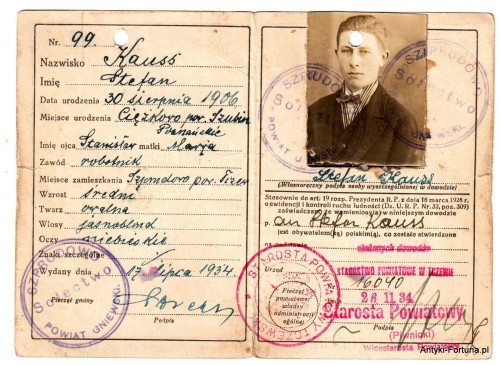 Nr. 99.
Nazwisko Kauss
Imię Stefan
Data urodzenia 30 sierpnia 1906
Miejsce urodzenia Ciężkowo pow. Szubin
Poznańskie
Imię ojca Stanisław matki Marja
Zawód robotnik
Miejsce zamieszkania pow. Tczew
Wzrost średni
Twarz owalna
Włosy jasnoblond
Oczy niebieskie
Znaki szczególne
Wydany dnia 17 lipca 1934.
Pieczęć gminy
Podpis
SZPRUDOWO
Sołectwo
POWIAT GNIEWSKI
SZPRUDOWO
Sołectwo
POWIAT GNIEWSKI
SZPRUDOWO
Sołectwo
POWIAT GNIEWSKI
Stefan Kauss
(Własnoręczny podpis osoby wyszczególnionej w dowodzie)
Stosownie do art. 19 rozp. Prezydenta R. P. z dnia 16 marca 1928 r.
o ewidencji i kontroli ruchu ludności (Dz. U. R. P. Nr. 32, poz. 309)
zaświadcza się, że wymieniony w niniejszym dowodzie
p. an Stefan Kauss
jest obywatelem polskim, co zostało stwierdzone
na podstawie złożonych dowodów
Urząd STAROSTWO POWIATOWE W TCZEWIE
16040
26 11 34
Starosta Powiatowy
Podpis
(Piwnicki)
Wicestarosta Powiatowy
STAROSTA POWIATOWY TCZEWSKI
Pieczęć
powiatowej
władzy
administracji
ogólnej
Antyki-Fortuna.pl